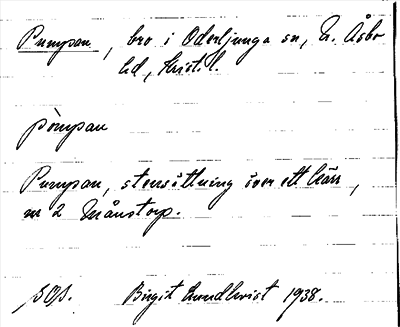 Pumpan, bro i Oderljunga sn, N. Åsbo
hd, Krist. l.
pòmpan
Pumpan, stensättning över ett kärr,
nr 2 Månstorp.
Birgit Lundkvist 1938.